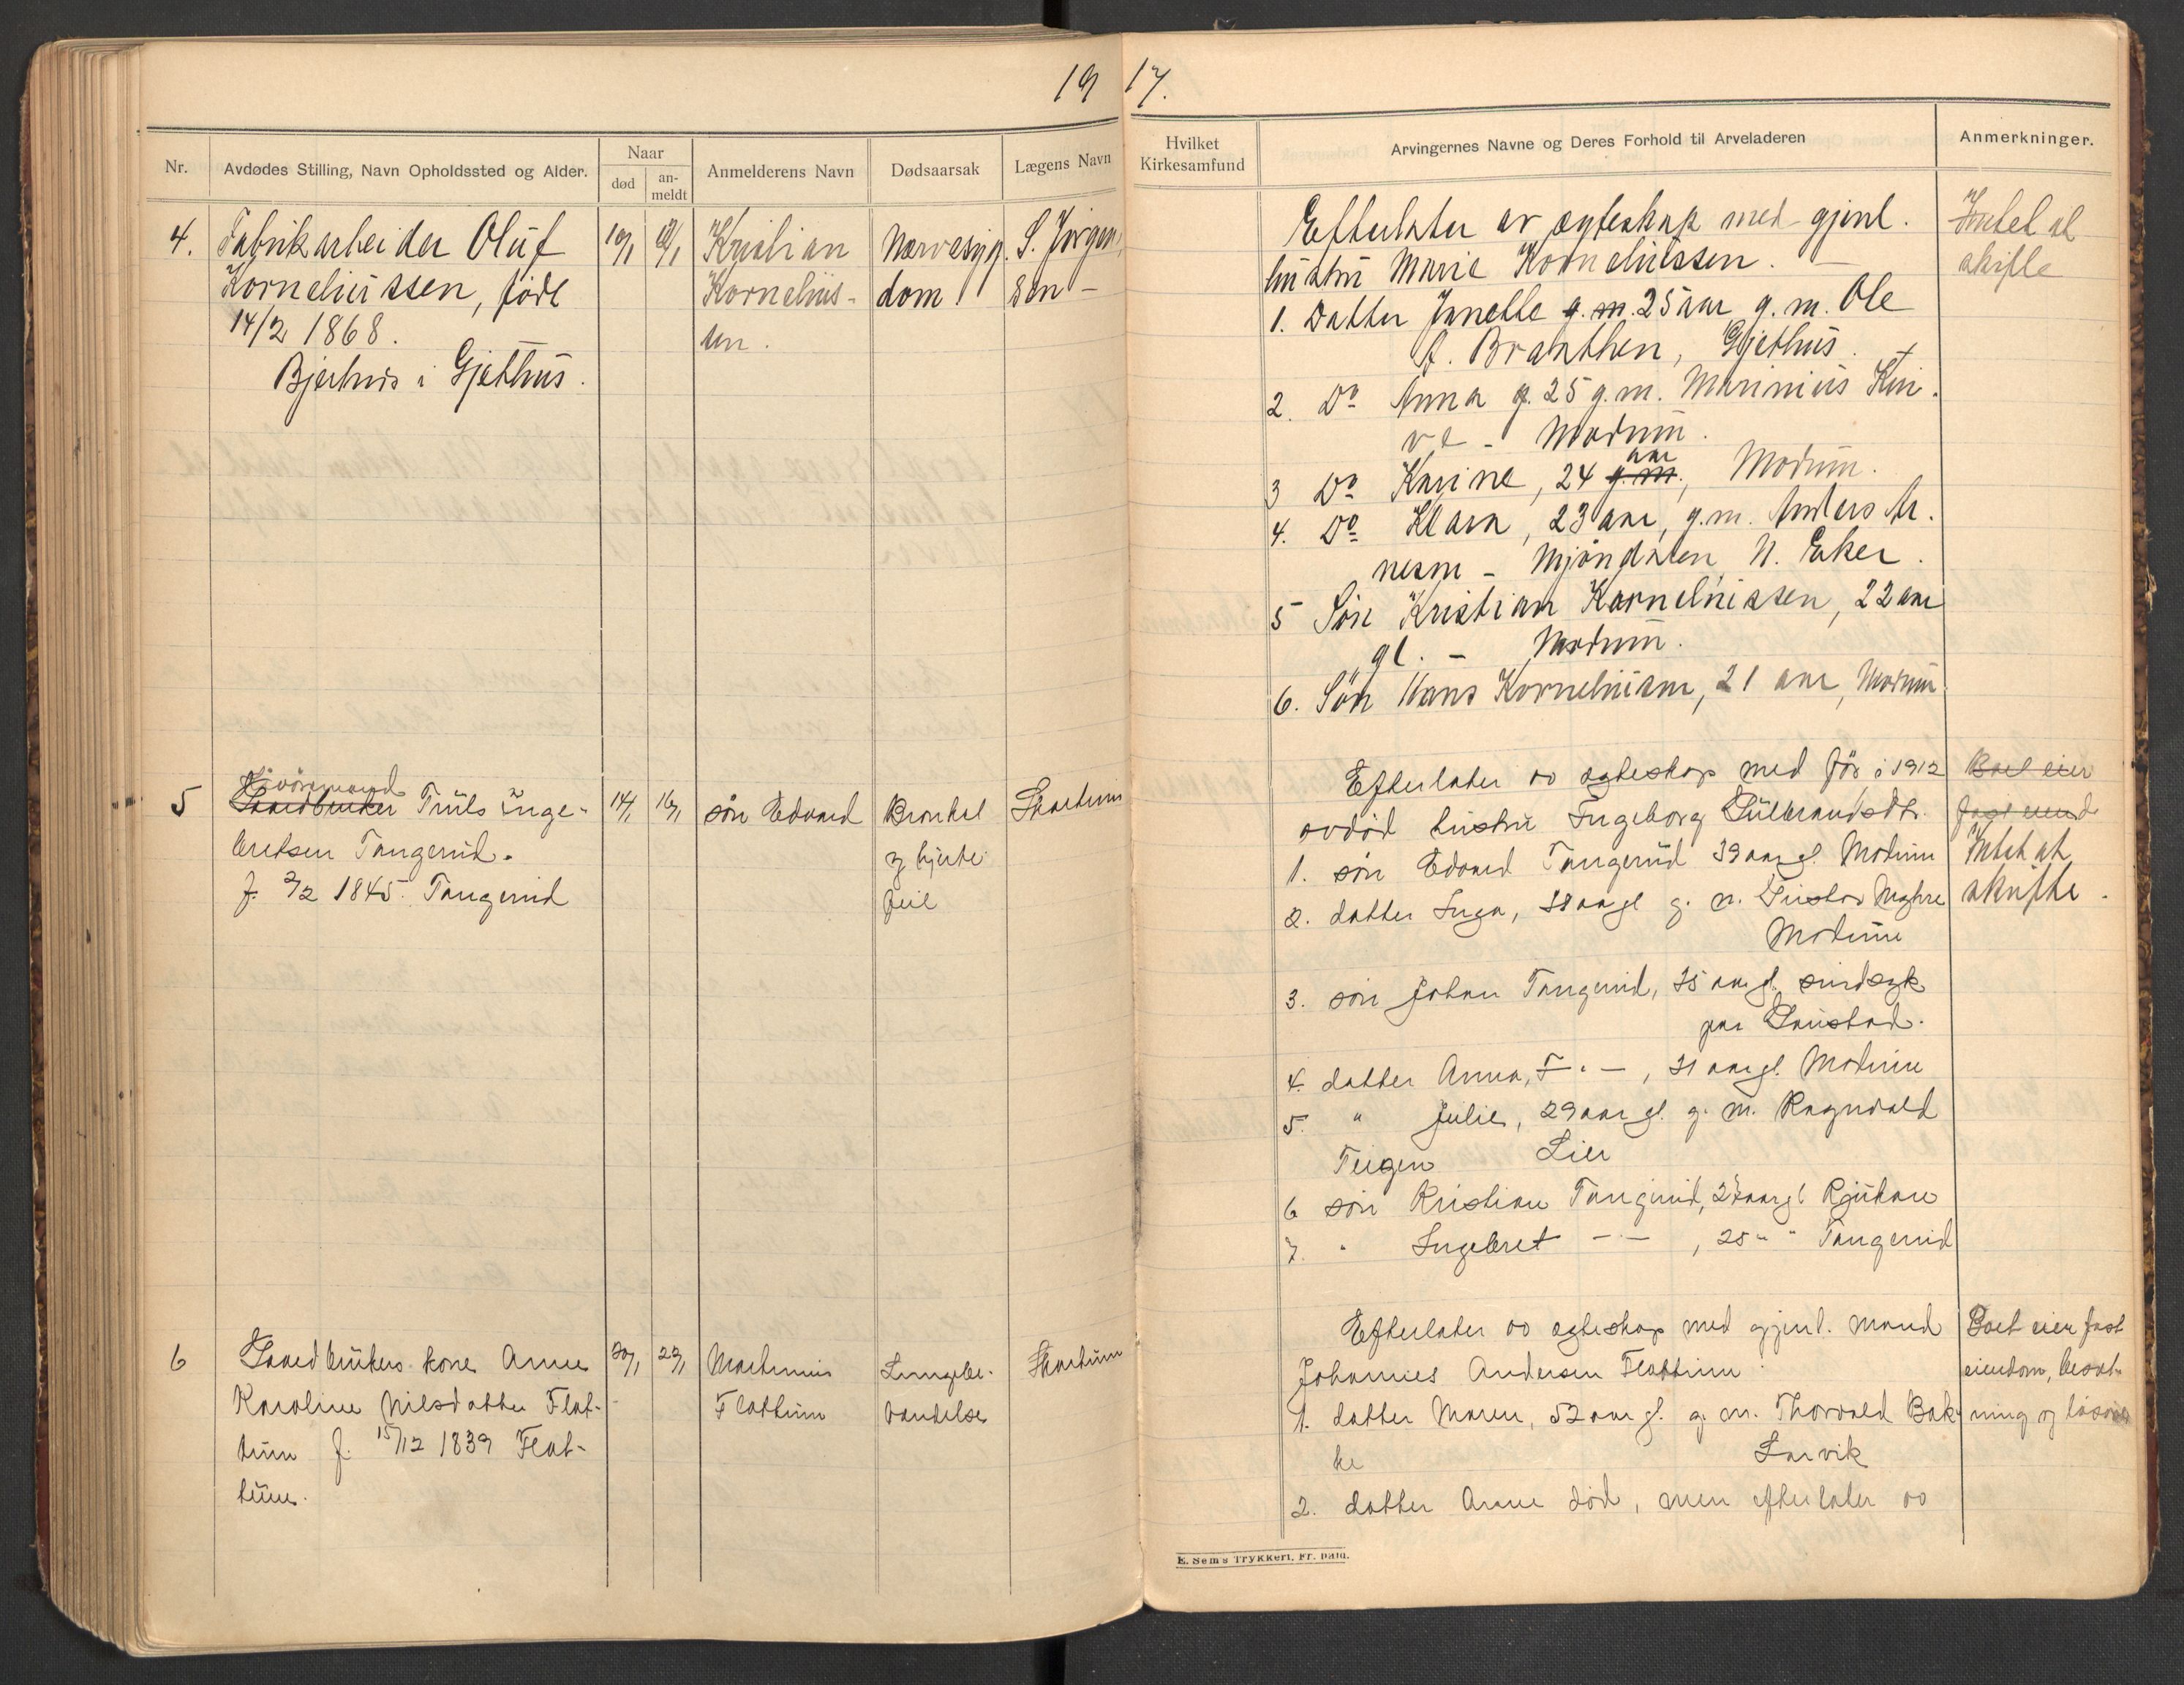 19 17.
Nr.
Avdødes Stilling, Navn Opholdssted og Alder.
Naar
død
an-
meldt
Anmelderens Navn
Dødsaarsak
Lægens Navn
Hvilket
Kirkesamfund
Arvingernes Navne og Deres Forhold til Arveladeren
Anmerkninger.
4.
Fabrikarbeider Oluf
Kornelius sen, född
14/2 1868.
Bjerhus i Gjethus.
Kristian
Kornelius-
sen.
Nervesyg.
dom
S. Jörgen
sen -
Efterlater av egteskap med gjenl.
hustru Marie Korneliussen. -
1. Datter Janette g.m. 25 aar g.m. Ole
A. Braathen, Gjethus.
2. Do Anna g. 25 g.m. Marinius
ve - Modum.
3 Do Karine, 24 g.m. aar, Modum.
4. Do Klara, 23 aar, g.m. Anders Ar.
nesen - Mjöndalen, N. Eker.
5 Sön Kristian Korneliussen, 22 aar
gl. - Modum.
6. Sön Hans Korneliussen, 21 aar, Modum.
Intet at
skifte
5
Kvöremand
Landbruker Truls Inge-
bretsen Tangerud.
f. 2/2 1845. Tangerud
14/1
16/1
sön Edvard
Bronkel
og hjerte
feil
Skartum
Efterlater av egteskap med för i 1912
avdöd hustru Ingeborg Gulbrandsdtr.
1. sön Edvard Tangerud 39 aar gl. Modum
2. datter Inga, 38 aar gl g. m. Gustav Myhre
Modum
3. sön Johan Tangerud, 35 aar gl. sindsyk
paa Gaustad.
4. datter Anna, T - . - , 31 aar gl. Modum
5. " Julie, 29 aar gl. g. m. Ragnvald
Teigen Lier
6 sön Kristian Tangerud, 27 aar gl Rjukan
7. " Ingebret - - , 25 " " Tangerud
Boet eier
fast eiend
Intet at
skifte.
6
Landbrukers kone Anne
Karoline Nilsdatter Flat-
tum f. 15/12 1839 Flat-
tum.
20/1
22/1
Martinius
Flattum
Lungebe-
tændelse
Skartum
Efterlater av egteskap med gjenl. mand
Johannes Andersen Flattum
1. datter Maren, 52 aar gl. g. m. Thorvald Bak-
ke Larvik
2. datter Anne död, men efterlater av
Boet eier fast
eiendom, besæt-
ning og lösöre
E. Sem's Trykkeri, Fr. hald.